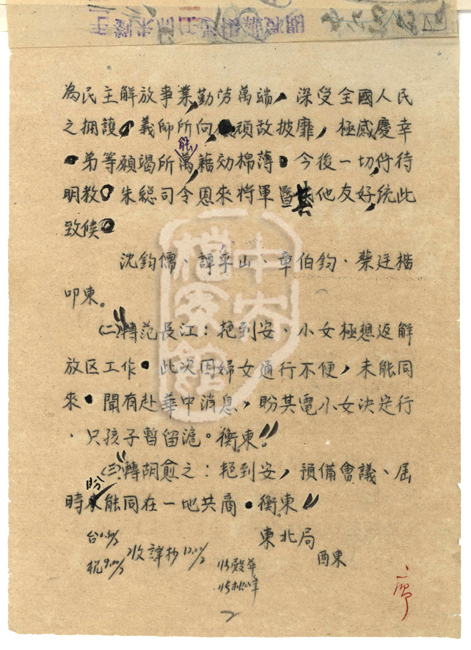 為民主解放事業勤勞萬端,深受全國人民
之擁護。義師所向,頑敵披靡,極感慶幸
。弟等願竭所能,藉効棉薄。今後一切,佇待
明教。朱總司令恩來將軍暨其他友好,統此
致候。
沈鈞儒、譚平山、章伯鈞、蔡廷楷
叩東。
(二)轉范長江:艳到安、小女極想返解
放区工作。此次因婦女通行不便,未能同
來。聞有赴華中消息,盼其電小女決定行
,只孩子暫留滬。衡東。
(三)轉胡愈之:艳到安,預備會議、屆
時盼能同在一地共商。衡東
東北局
酉東
收譯抄
2